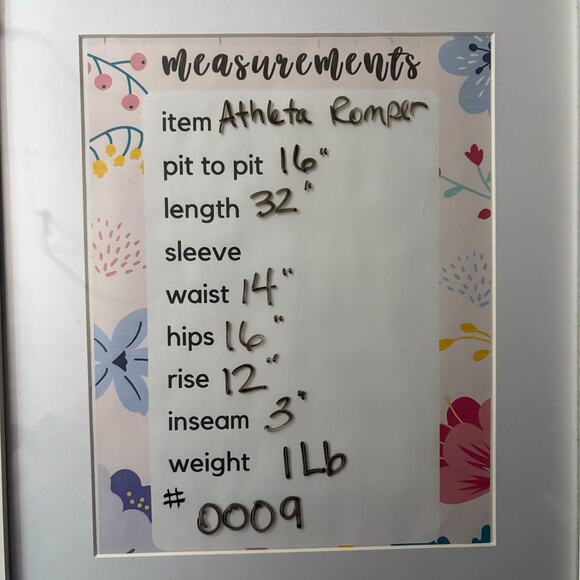 measurements
item Athleta Romper
pit to pit 16"
length 32"
sleeve
waist 14"
hips 16"
rise 12"
inseam 3"
weight 1 Lb
# 0009